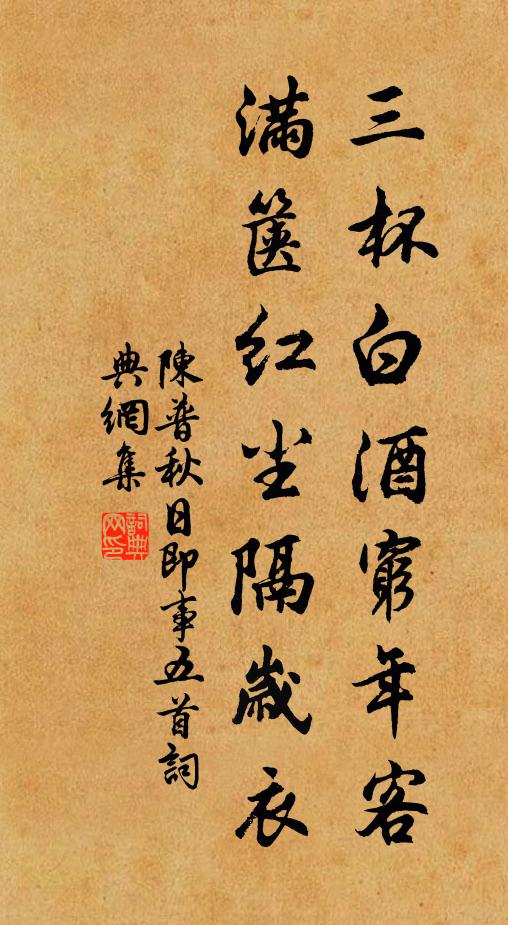 三杯白酒窮年客
滿篋紅尘隔歲衣
陳普秋日即事五首詞
典網集
詞典
网印